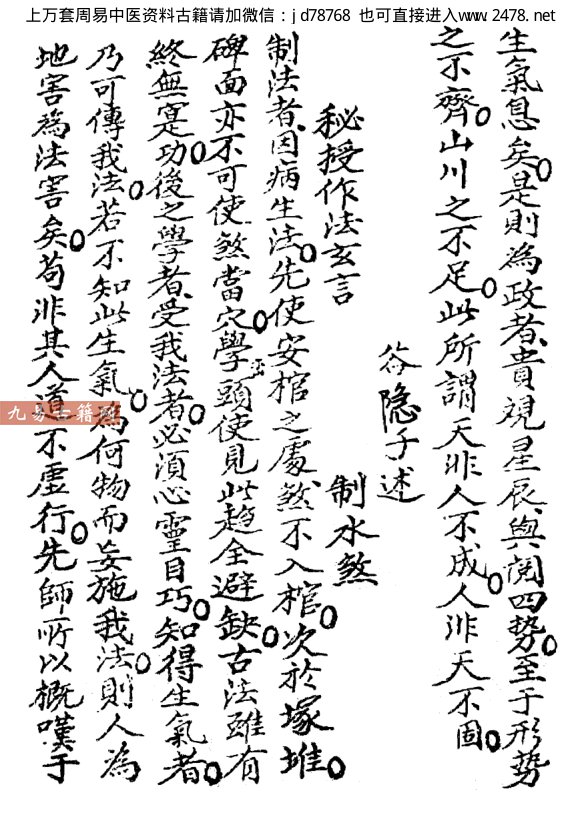 上万套周易中医资料古籍请加微信：jd78768 也可直接进入www.2478.net
生氣息矣是則為政者貴覌星辰與閱四勢至于形勢
之不齊山川之不足此所謂天非人不成人非天不固
谷隐子述
秘授作法玄言 制水煞
制法者因病生法先使安棺之處煞不入棺次於塚堆
碑面亦不可使煞當穴學頭使見此趋全避缺古法雖有
終無寔功後之學者受我法者必須心靈目巧知得生氣者
乃可傳我法若不知此生氣為何物而妄施我法則人為
地害為法害矣苟非其人道不虛行先師所以概嘆于
九易古籍網